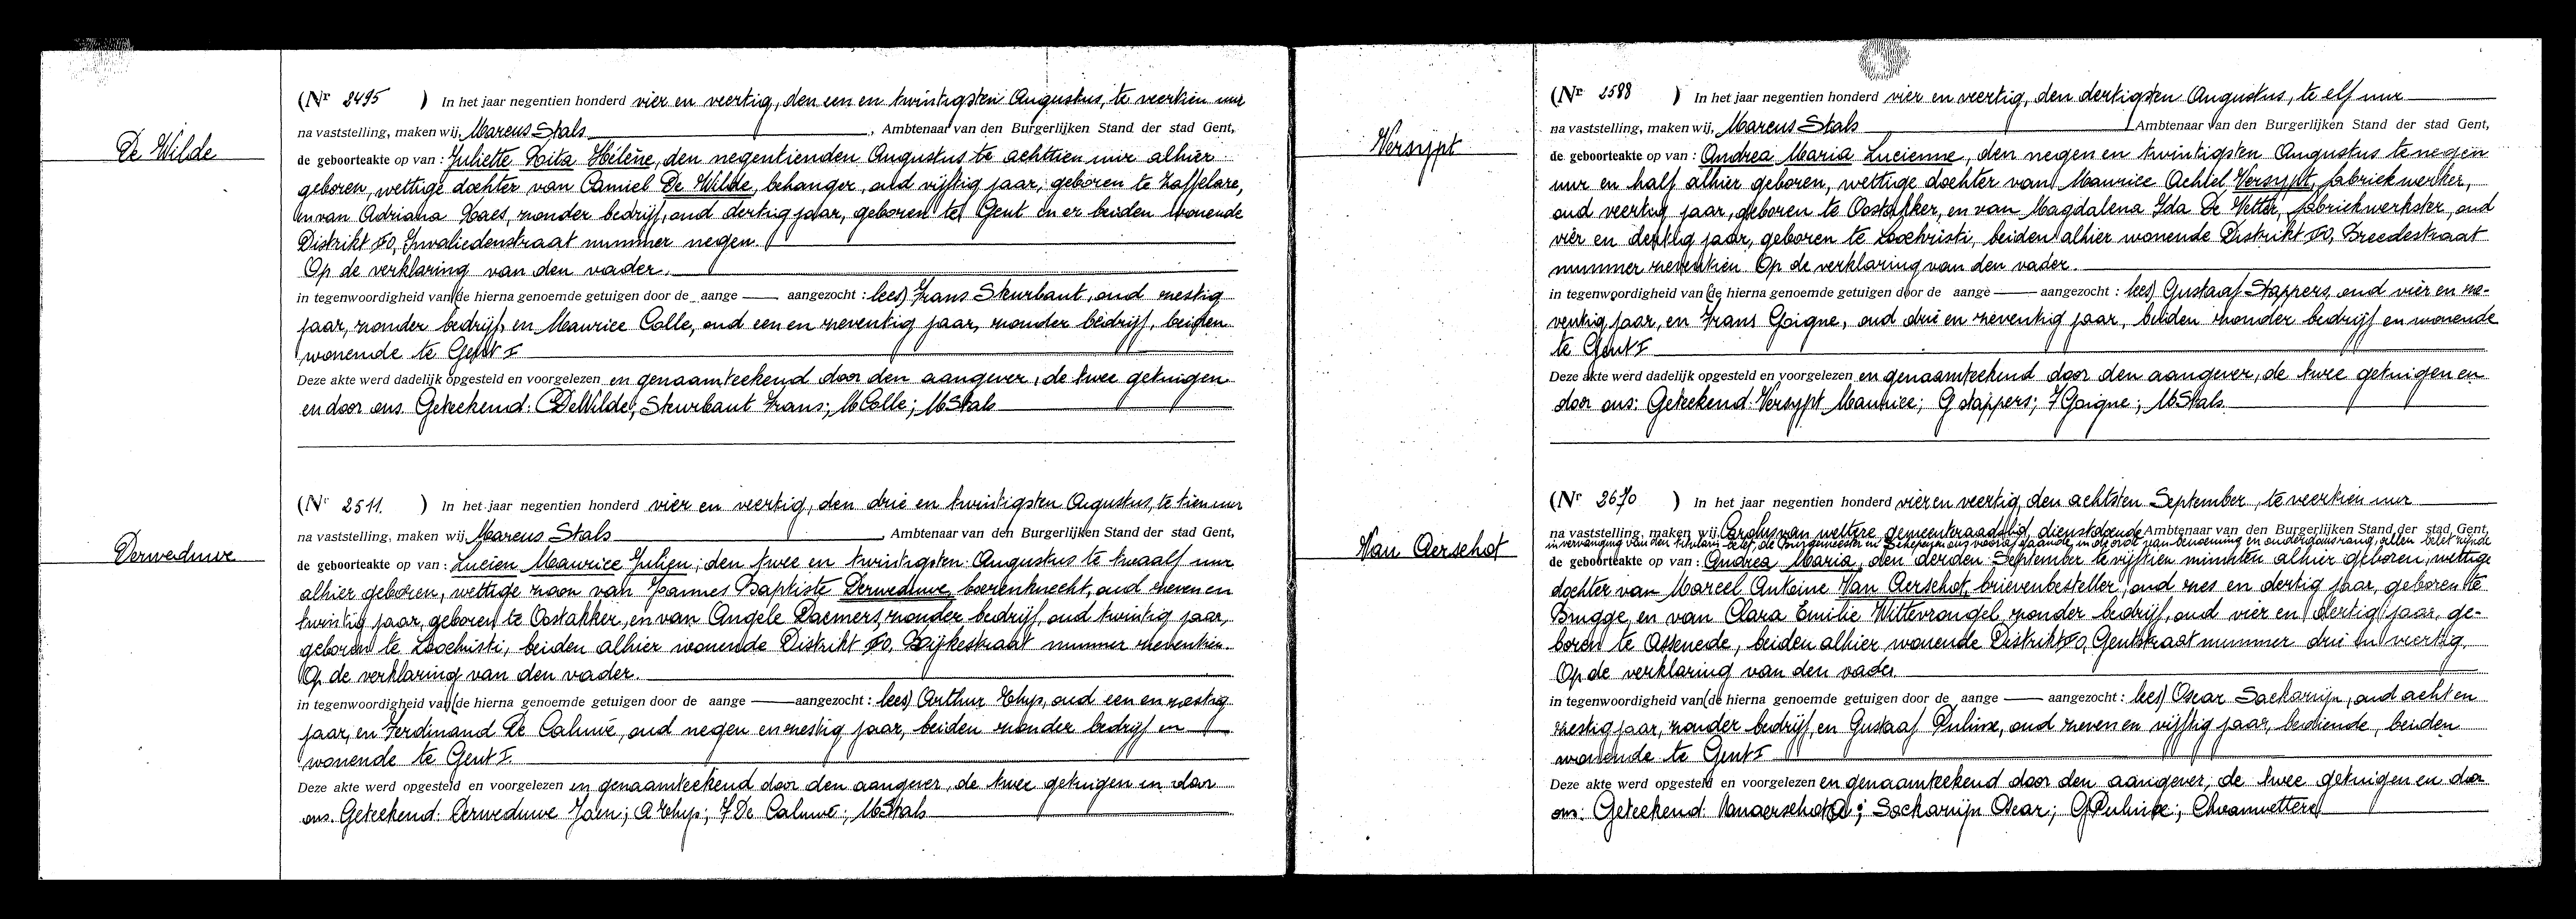 De Wilde
(Nr 2495 ) In het jaar negentien honderd vier en veertig, den een en twintigsten Augustus, te veertien uur
na vaststelling, maken wij, Marcus Stals , Ambtenaar van den Burgerlijken Stand der stad Gent,
de geboorteakte op van : Juliette Rita Hélène, den negentienden Augustus te achttien uur alhier
geboren, wettige dochter van Camiel De Wilde, behanger, oud vijftig jaar, geboren te Zaffelare,
en van Adriana Haes, zonder bedrijf, oud dertig jaar, geboren te Gent en er beiden wonende
Distrikt Invaliedenstraat nummer negen.
Op de verklaring van den vader.
in tegenwoordigheid van (de hierna genoemde getuigen door de aange — aangezocht : lees) Frans Steurbaut, oud zestig
jaar, zonder bedrijf, en Maurice Colle, oud een en zeventig jaar, zonder bedrijf, beiden
wonende te Gent I
Deze akte werd dadelijk opgesteld en voorgelezen en genaamteekend door den aangever, de twee getuigen
en door ons. Geteekend: C DeWilde; Steurbaut Frans; M Colle; M Stals
Derweduwe
(Nr 2511. ) In het jaar negentien honderd vier en veertig, den drie en twintigsten Augustus, te tien uur
na vaststelling, maken wij, Marcus Stals , Ambtenaar van den Burgerlijken Stand der stad Gent,
de geboorteakte op van : Lucien Maurice Julien, den twee en twintigsten Augustus te twaalf uur
alhier geboren, wettige zoon van Joannes Baptiste Derweduwe, boerenknecht, oud zeven en
twintig jaar, geboren te Oostakker, en van Angèle Daemers, zonder bedrijf, oud twintig jaar,
geboren te Loochristi, beiden alhier wonende Distrikt Bijkestraat nummer zeventien.
Op de verklaring van den vader.
in tegenwoordigheid van (de hierna genoemde getuigen door de aange — aangezocht : lees) Arthur Thyp, oud een en zestig
jaar, en Ferdinand De Caluwé, oud negen en zestig jaar, beiden zonder bedrijf en
wonende te Gent I.
Deze akte werd opgesteld en voorgelezen en genaamteekend door den aangever, de twee getuigen en door
ons. Geteekend: Derweduwe Jaen; A Thyp; F De Caluwé; M Stals
Versypt
(Nr 2588 ) In het jaar negentien honderd vier en veertig, den dertigsten Augustus, te elf uur
na vaststelling, maken wij, Marcus Stals Ambtenaar van den Burgerlijken Stand der stad Gent,
de geboorteakte op van : Andrea Maria Lucienne, den negen en twintigsten Augustus te negen
uur en half alhier geboren, wettige dochter van Maurice Achiel Versypt, fabriekwerker,
oud veertig jaar, geboren te Oostakker, en van Magdalena Ida De Vetter, fabriekwerkster, oud
vier en dertig jaar, geboren te Loochristi, beiden alhier wonende Distrikt Breedestraat
nummer zeventien. Op de verklaring van den vader.
in tegenwoordigheid van (de hierna genoemde getuigen door de aange — aangezocht : lees) Gustaaf Stappers, oud vier en ze-
ventig jaar, en Frans Goigne, oud drie en zeventig jaar, beiden zonder bedrijf en wonende
te Gent I
Deze akte werd dadelijk opgesteld en voorgelezen en genaamteekend door den aangever, de twee getuigen en
door ons: Geteekend: Versypt Maurice; G Stappers; F Goigne; M Stals.
Van Aerschot
(Nr 2670 ) In het jaar negentien honderd vier en veertig, den achtsten September, te veertien uur
na vaststelling, maken wij, Carolus van wettere, gemeenteraadslid, dienstdoende Ambtenaar van den Burgerlijken Stand der stad Gent,
in vervanging van den titularis belet, de Burgemeester en Schepenen ons voorafgaande in de orde van benoeming en ouderdomsrang, allen belet zijnde
de geboorteakte op van : Andrea Maria, den derden September te vijftien minuten alhier geboren, wettige
dochter van Marcel Antoine Van Aerschot, brievenbesteller, oud zes en dertig jaar, geboren te
Brugge, en van Clara Emilie Wittevrongel, zonder bedrijf, oud vier en dertig jaar, ge-
boren te Assenede, beiden alhier wonende Distrikt Gentstraat nummer drie en veertig.
Op de verklaring van den vader.
in tegenwoordigheid van (de hierna genoemde getuigen door de aange — aangezocht : lees) Oscar Sackarnijn, oud acht en
zestig jaar, zonder bedrijf, en Gustaaf Pulinx, oud zeven en vijftig jaar, bediende, beiden
wonende te Gent I
Deze akte werd opgesteld en voorgelezen en genaamteekend door den aangever, de twee getuigen en door
ons: Geteekend: Vanaerschot A; Sackarnijn Oscar; G Pulinx; Ch vanwettere